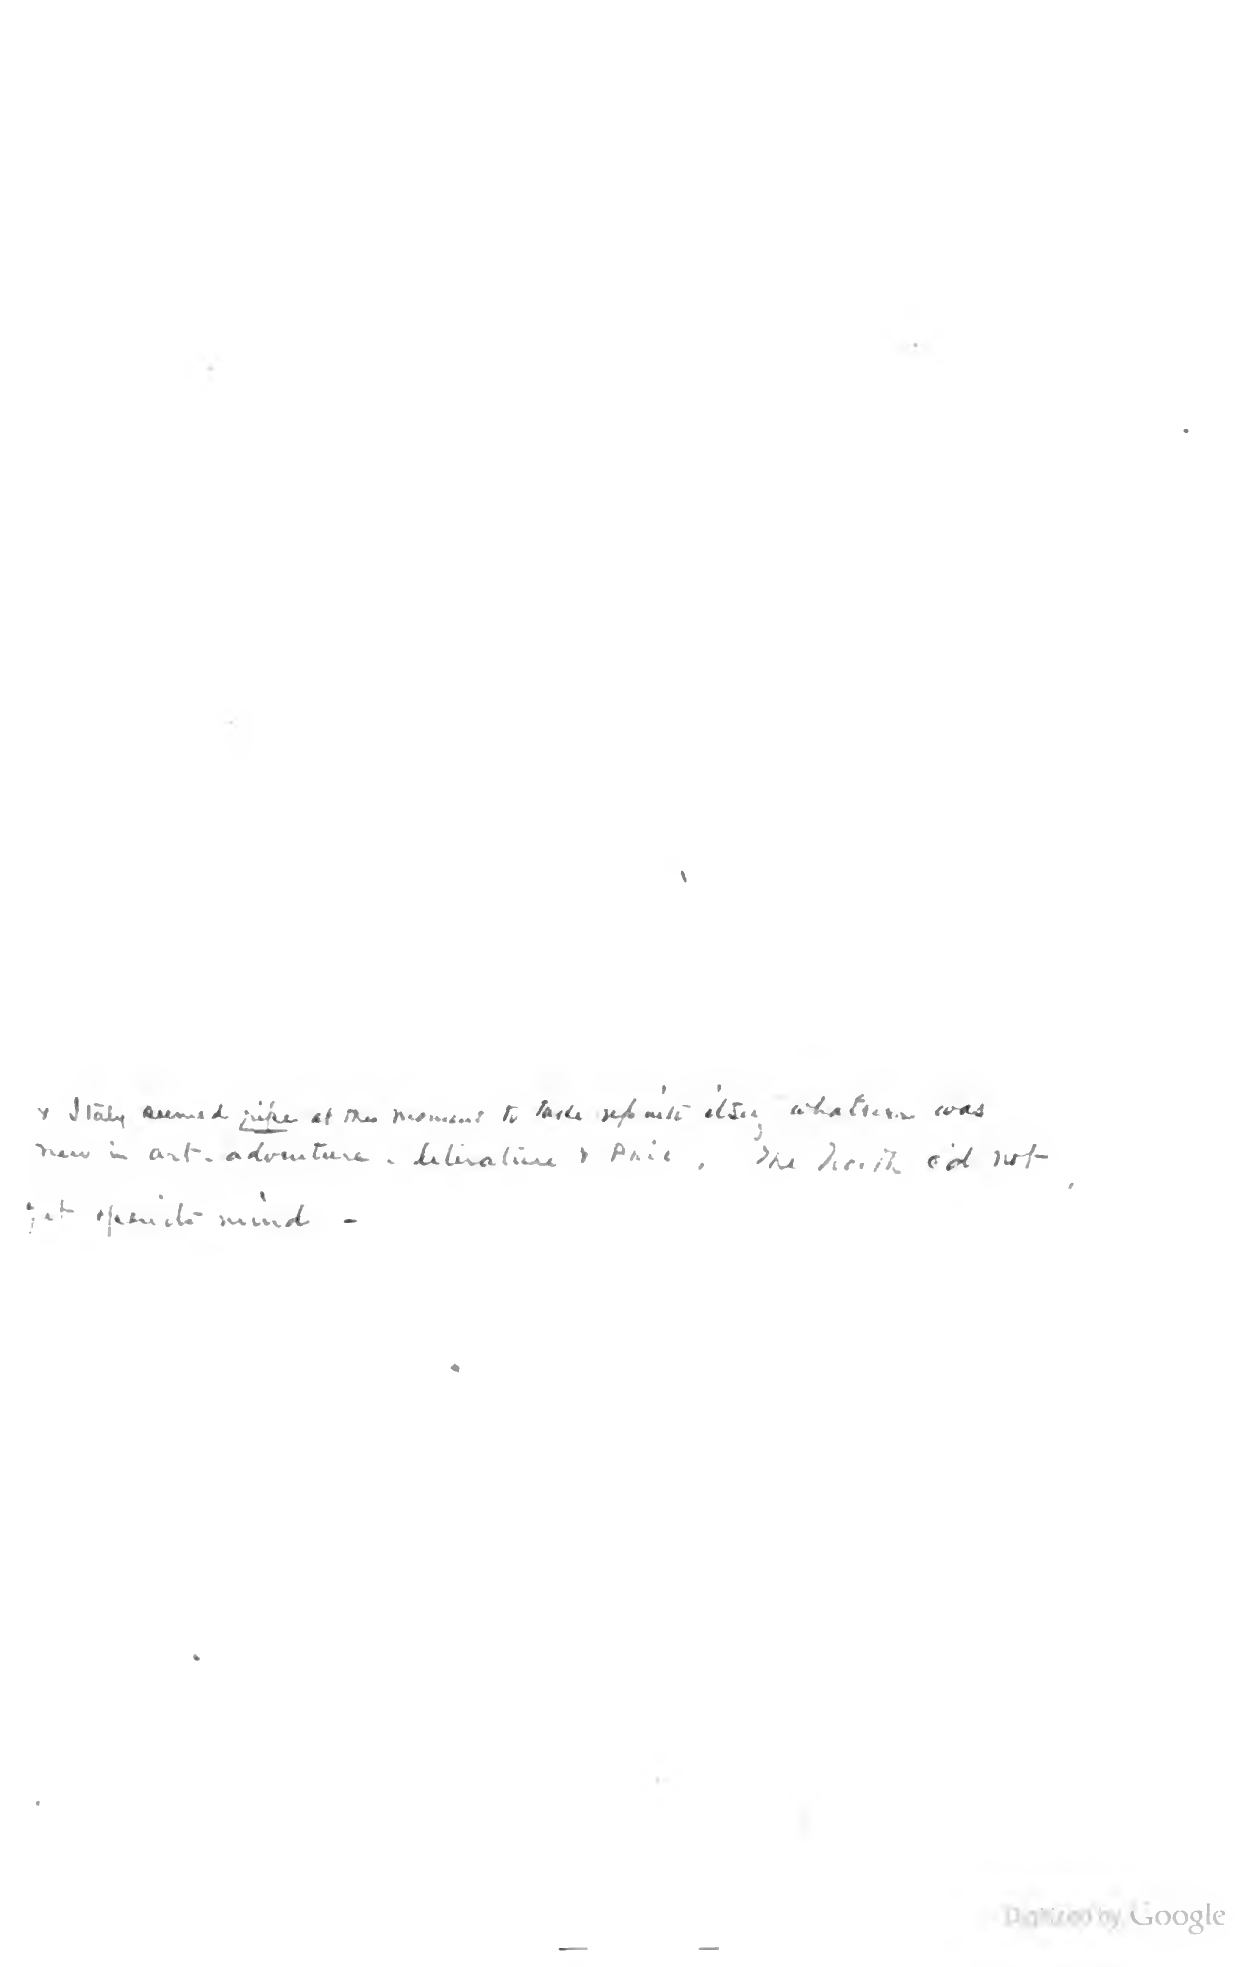 x Italy seemed ripe at this moment to take up into itself whatever was
new in art. adventure. literature & . The North did not
yet open its mind -
Digitized by Google